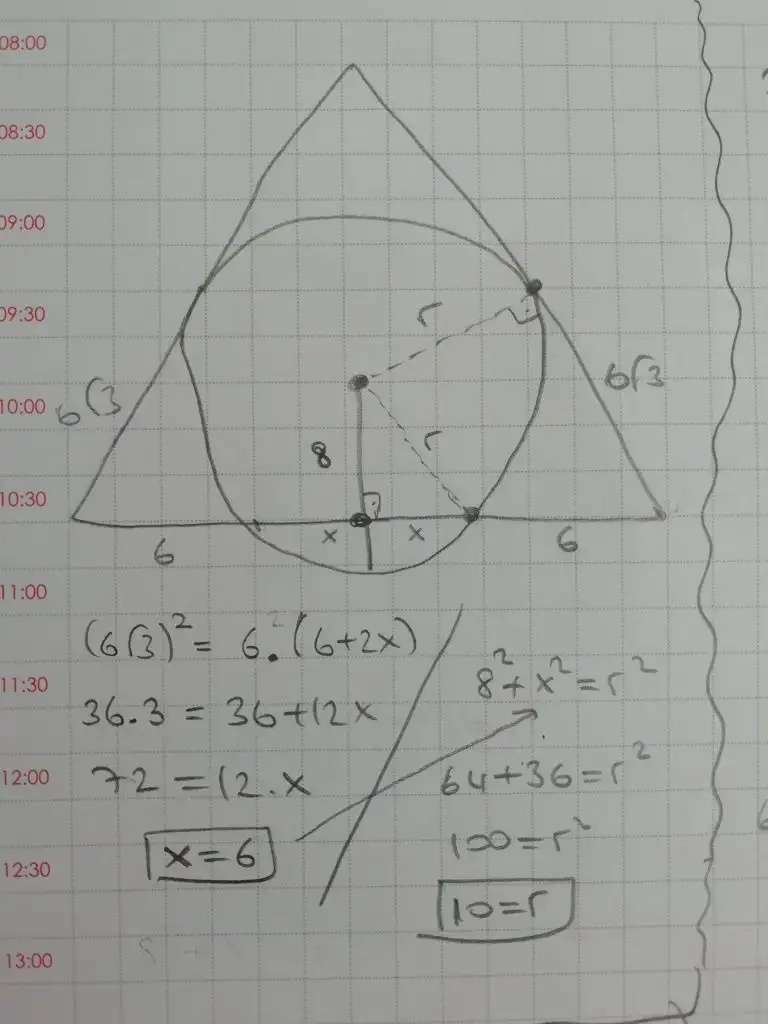 08:00
08:30
09:00
09:30
10:00
10:30
11:00
11:30
12:00
12:30
13:00
r
6√3
6√3
8
r
6
x
x
6
(6√3)² = 6.(6+2x)
36.3 = 36+12x
72 = 12.x
x = 6
8² + x² = r²
64+36 = r²
100 = r²
10 = r